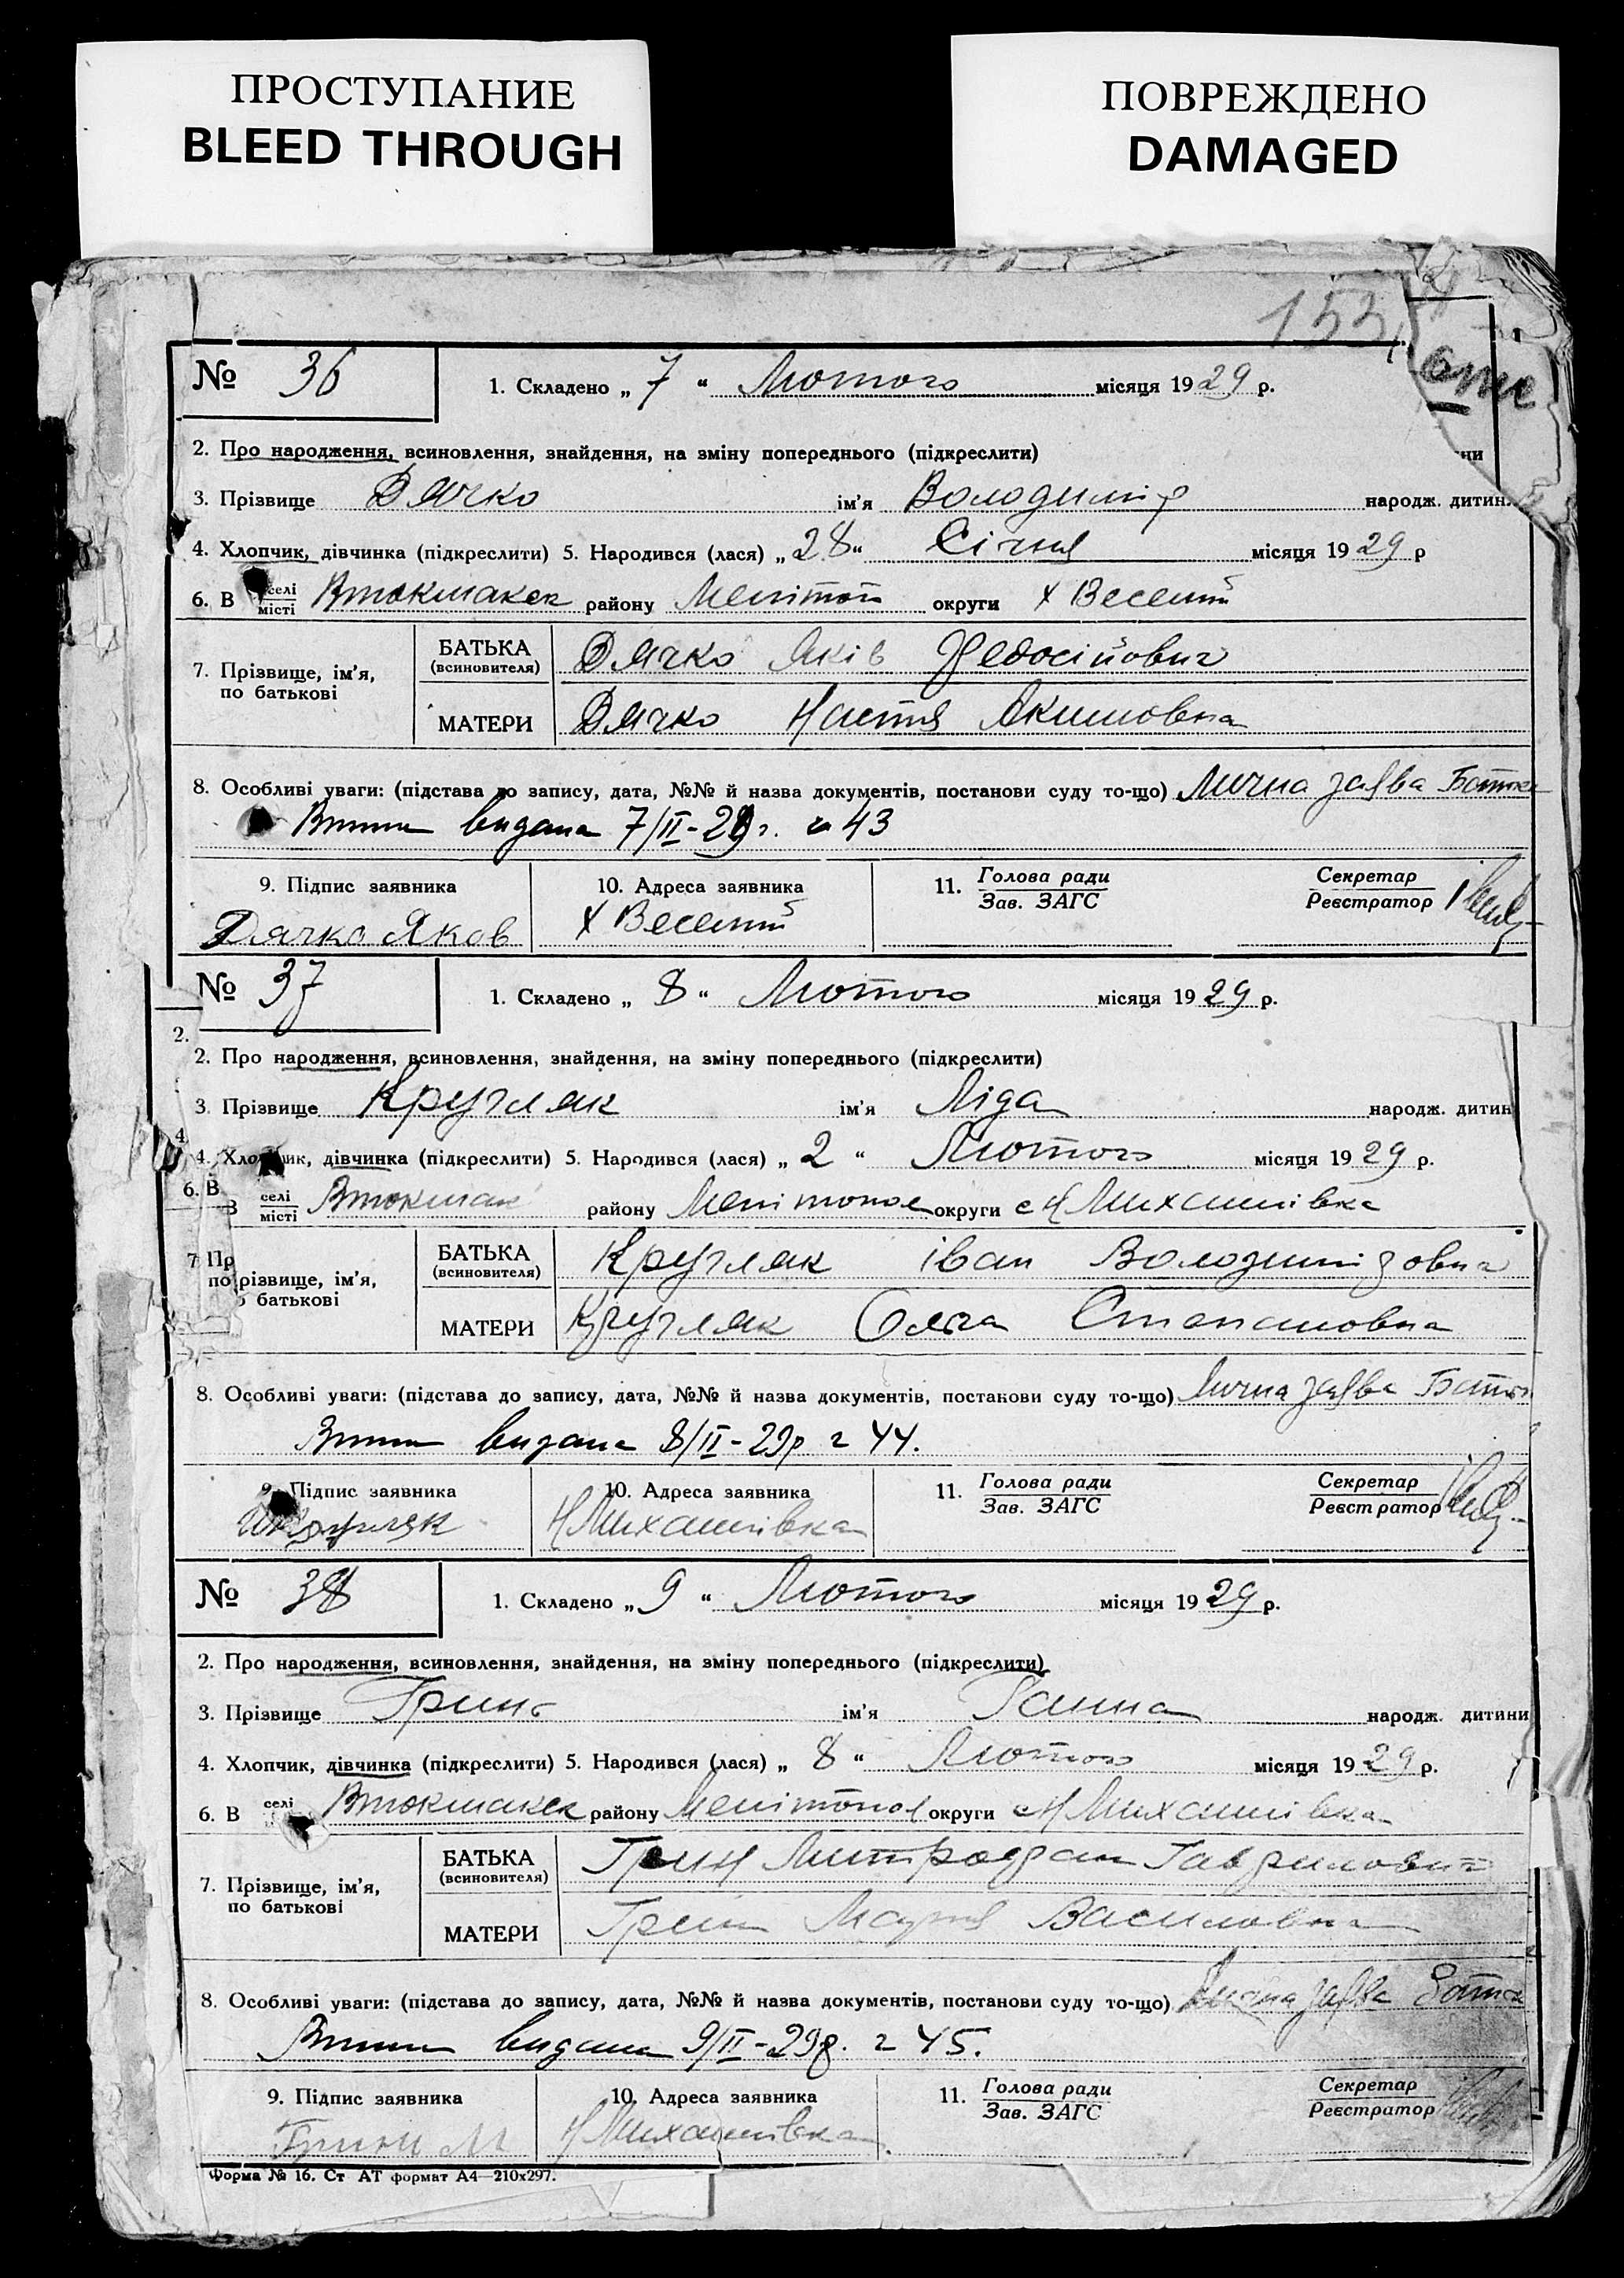 ПРОСТУПАНИЕ
BLEED THROUGH
ПОВРЕЖДЕНО
DAMAGED
153
№ 36 1. Складено „ 7 “ Лютого місяця 1929 р.
2. Про народження, всиновлення, знайдення, на зміну попереднього (підкреслити)
3. Прізвище Дячко ім’я Володимір народж. дитин
4. Хлопчик, дівчинка (підкреслити) 5. Народився (лася) „ 28 “ Січня місяця 1929 р
6. В селі місті Втокмакск району Мелітоп округи х Веселий
7. Прізвище, ім’я, по батькові
БАТЬКА (всиновителя) Дячко Яків Федосійович
МАТЕРИ Дячко Настя Якимовна
8. Особливі уваги: (підстава до запису, дата, №№ й назва документів, постанови суду то-що) Лична заява Батька
видана 7/II-29 г. 43
9. Підпис заявника 10. Адреса заявника 11. Голова ради Зав. ЗАГС Секретар Реєстратор
Дячко Яков х Веселий
№ 37 1. Складено „ 8 “ Лютого місяця 1929 р.
2.
2. Про народження, всиновлення, знайдення, на зміну попереднього (підкреслити)
3. Прізвище Кругляк ім’я Ліда народж. дитин
4
4. Хло ик, дівчинка (підкреслити) 5. Народився (лася) „ 2 “ Лютого місяця 1929 р.
6. В
В селі місті Втокмак району Мелітопол округи с Н Михайлівка
7 Пр
по різвище, ім’я, батькові
БАТЬКА (всиновителя) Кругляк Іван Володимірович
МАТЕРИ Кругляк Ольга Степановна
8. Особливі уваги: (підстава до запису, дата, №№ й назва документів, постанови суду то-що) Лична заява Батьк
видана 8/II-29р 44.
9. Підпис заявника 10. Адреса заявника 11. Голова ради Зав. ЗАГС Секретар Реєстратор
Кругляк Н Михайлівка
№ 38 1. Складено „ 9 “ Лютого місяця 1929 р.
2. Про народження, всиновлення, знайдення, на зміну попереднього (підкреслити)
3. Прізвище Гринь ім’я Ганна народж. дитини
4. Хлопчик, дівчинка (підкреслити) 5. Народився (лася) „ 8 “ Лютого місяця 1929 р.
6. В селі Втокмакск району Мелітопол округи с Н Михайлівка
7. Прізвище, ім’я, по батькові
БАТЬКА (всиновителя) Грин Митрофан Гаврилович
МАТЕРИ Грин Мария Василовна
8. Особливі уваги: (підстава до запису, дата, №№ й назва документів, постанови суду то-що) Лична заява Батьк
видана 9/II-29р. 45.
9. Підпис заявника 10. Адреса заявника 11. Голова ради Зав. ЗАГС Секретар Реєстратор
Н Михайлівка
Форма № 16. Ст АТ формат А4—210х297.